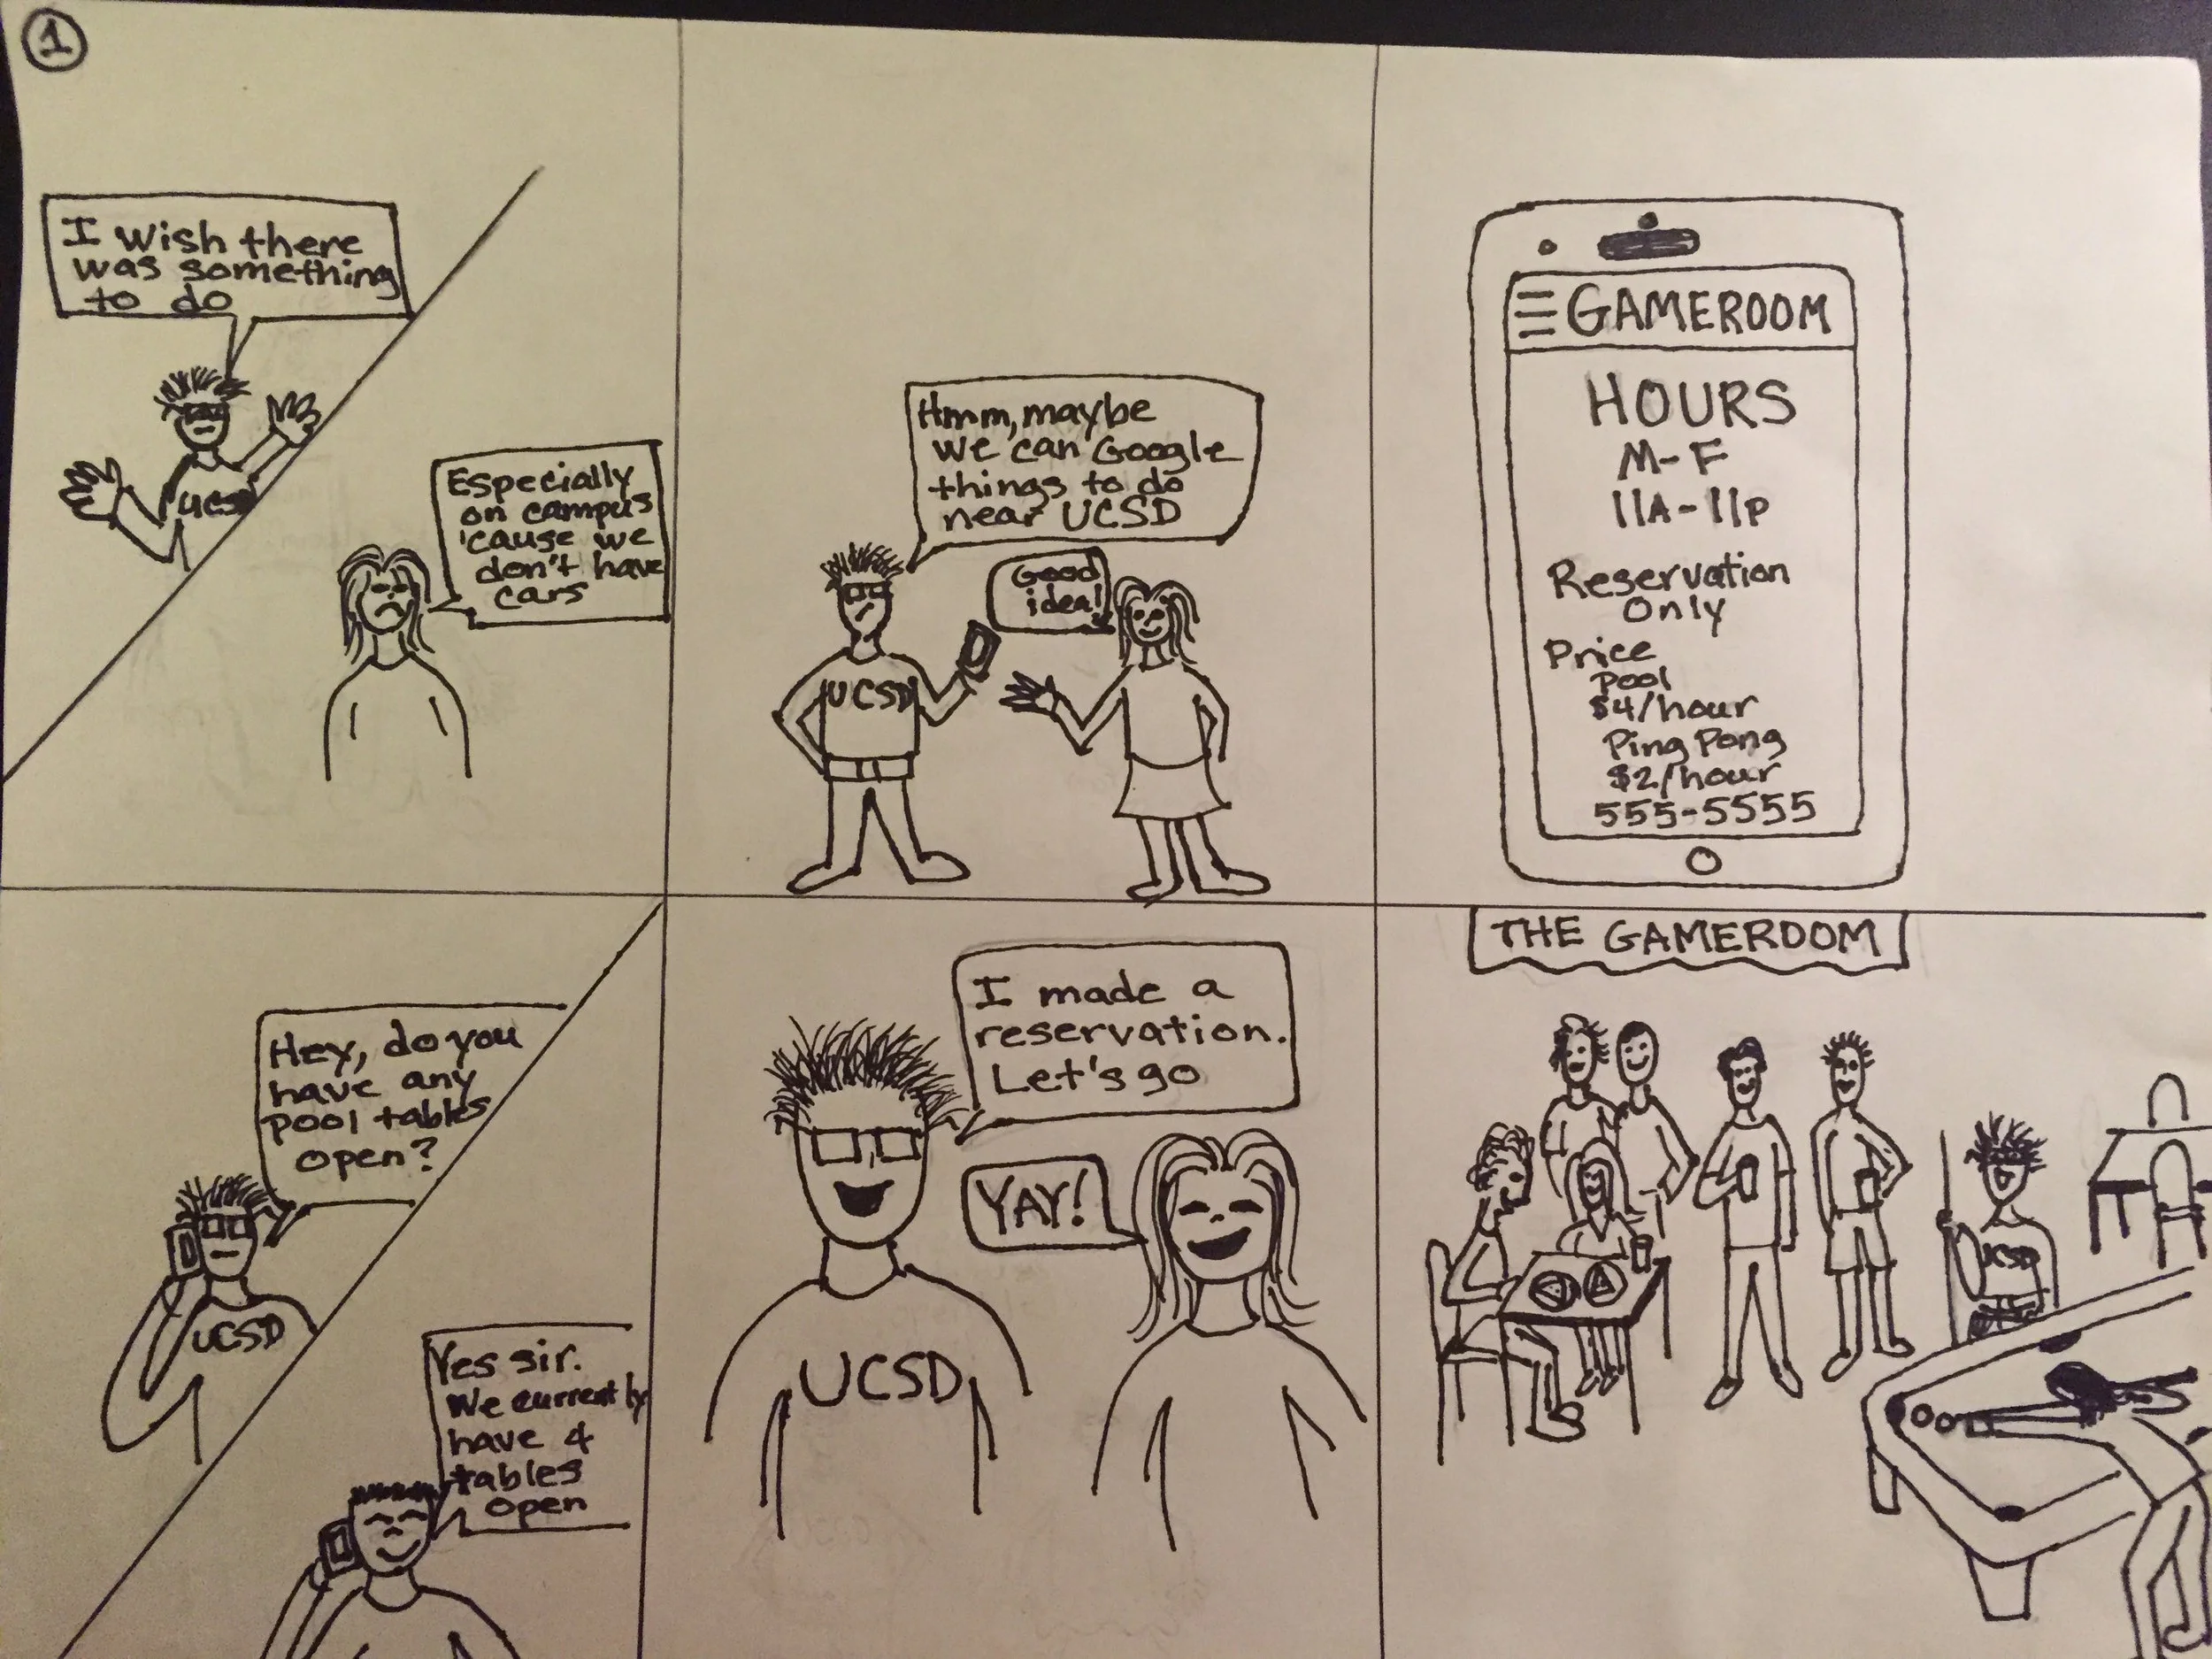 1
I wish there
was something
to do
UCSD
Especially
on campus
'cause we
don't have
cars
Hmm, maybe
we can Google
things to do
near UCSD
Good
idea!
UCSD
GAMEROOM
HOURS
M-F
11A-11P
Reservation
Only
Price
Pool
$4/hour
Ping Pong
$2/hour
555-5555
Hey, do you
have any
pool tables
open?
UCSD
Yes sir.
We currently
have 4
tables
open
I made a
reservation.
Let's go
YAY!
UCSD
THE GAMEROOM
UCSD